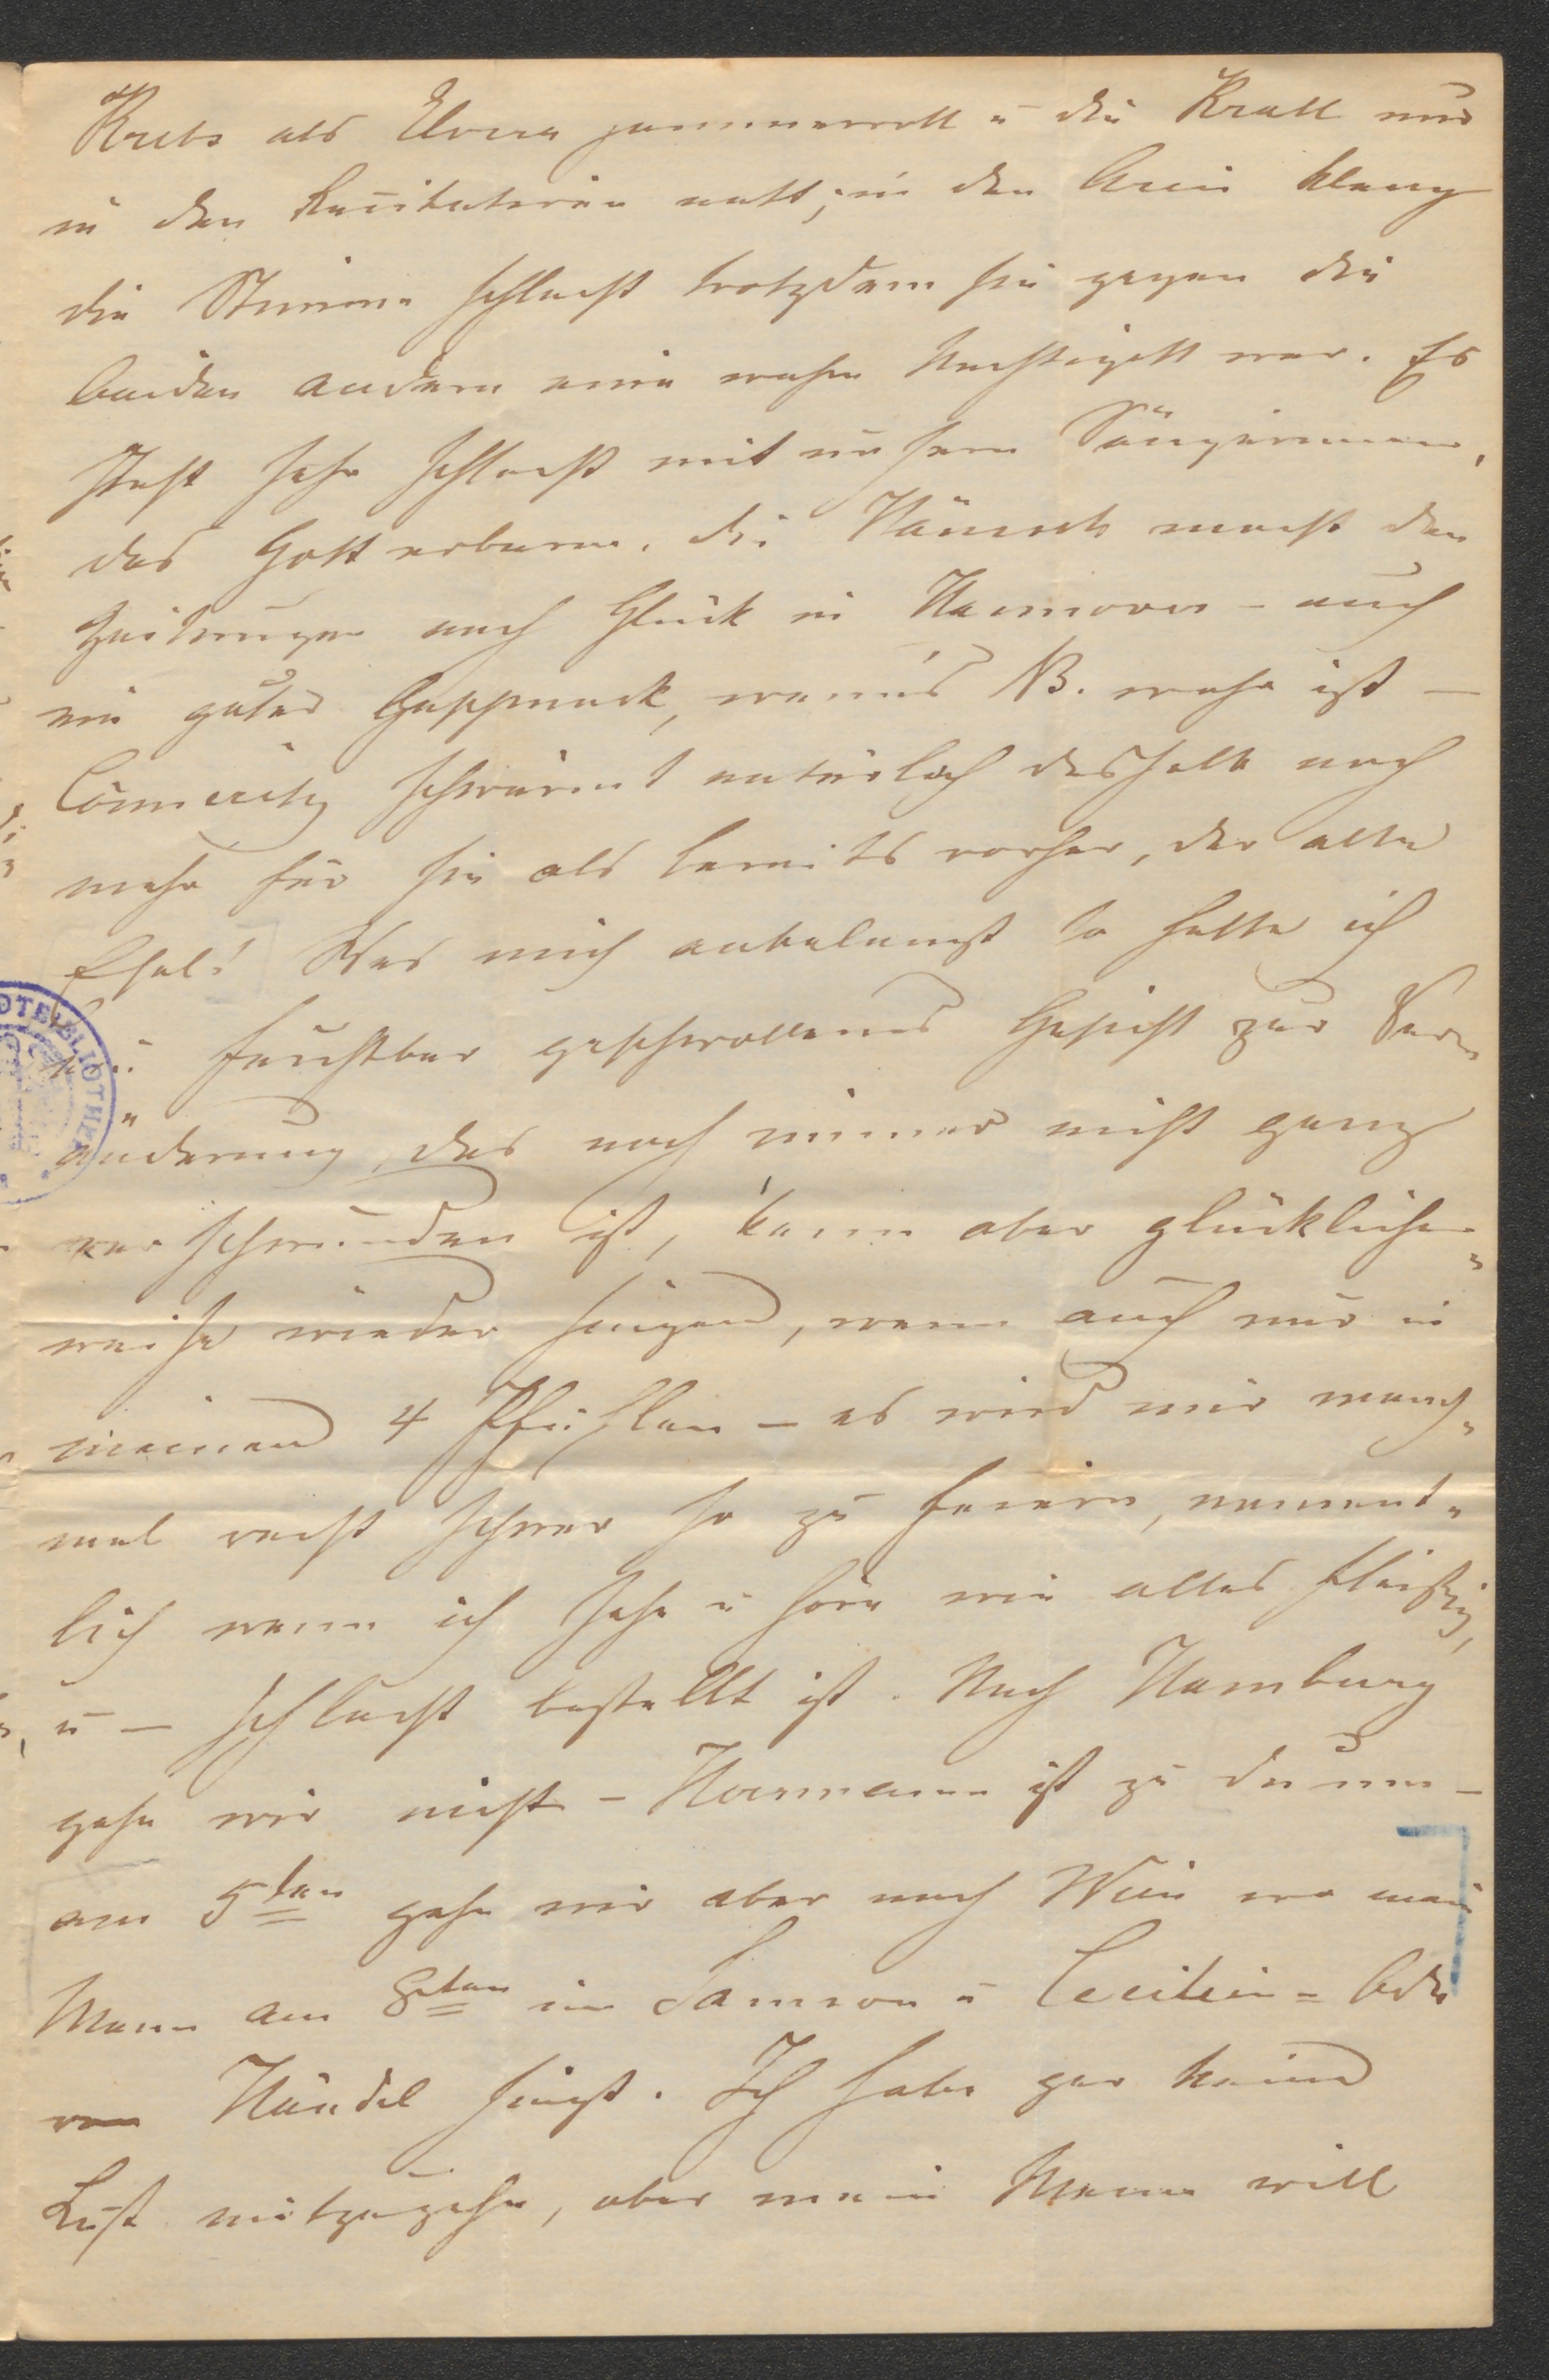 Krebs als Elvira jammervoll u die Krall nur
in den Recitativen nett, in den Arien klang
die Stimme schlecht trotzdem sie gegen die
beiden andern eine wahre Nachtigall war. Es
steht sehr schlecht mit unsern Sängerinnen,
das Gott erbarm. Die Hänisch macht den
Zeitungen nach Glück in Hannover - auch
ein guter Geschmack, wenn's NB. wahr ist -
schwärmt natürlich deshalb noch
mehr für sie als bereits vorher, der alte
Esel! Was mich anbelangt so hatte ich
ein furchtbar geschwollenes Gesicht zur Ver-
änderung, das noch immer nicht ganz
verschwunden ist, kann aber glücklicher-
weise wieder singen, wenn auch nur in
meinen 4 Pfählen - es wird mir manch-
mal recht schwer so zu feiern, nament-
lich wenn ich sehe u höre wie alles fleißig,
u - schlecht bestellt ist. Nach Hamburg
gehn wir nicht - Herrmann ist zu dumm -
am 5ten gehn wir aber nach Wien wo mein
Mann am 8ten im Samson u Cecilien-Ode
von Händel singt. Ich habe gar keine
Lust mitzugehn, aber mein Mann will